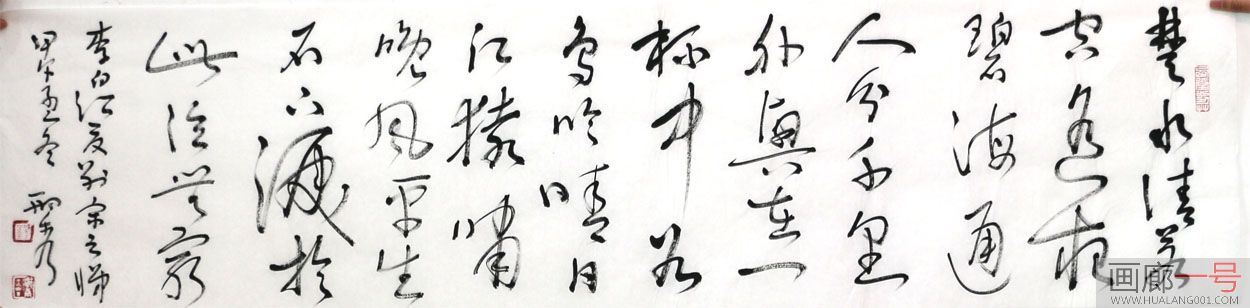 楚水清若
空遥将
碧海通
人分千里
外興在一
杯中谷
鳥吟晴日
江猿嘯
晚风平生
不下淚於
此泣無窮
李白江夏别宋之悌
甲午孟冬
画廊一号
WWW.HUALANG001.COM